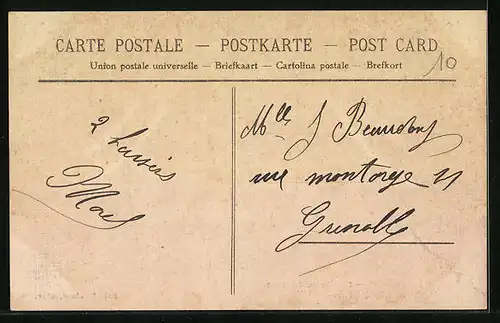 CARTE POSTALE — POSTKARTE — POST CARD
Union postale universelle — Briefkaart — Cartolina postale — Brefkort
10
2 baisers
Mlle J Beaudoing
rue montorge 11
Grenoble